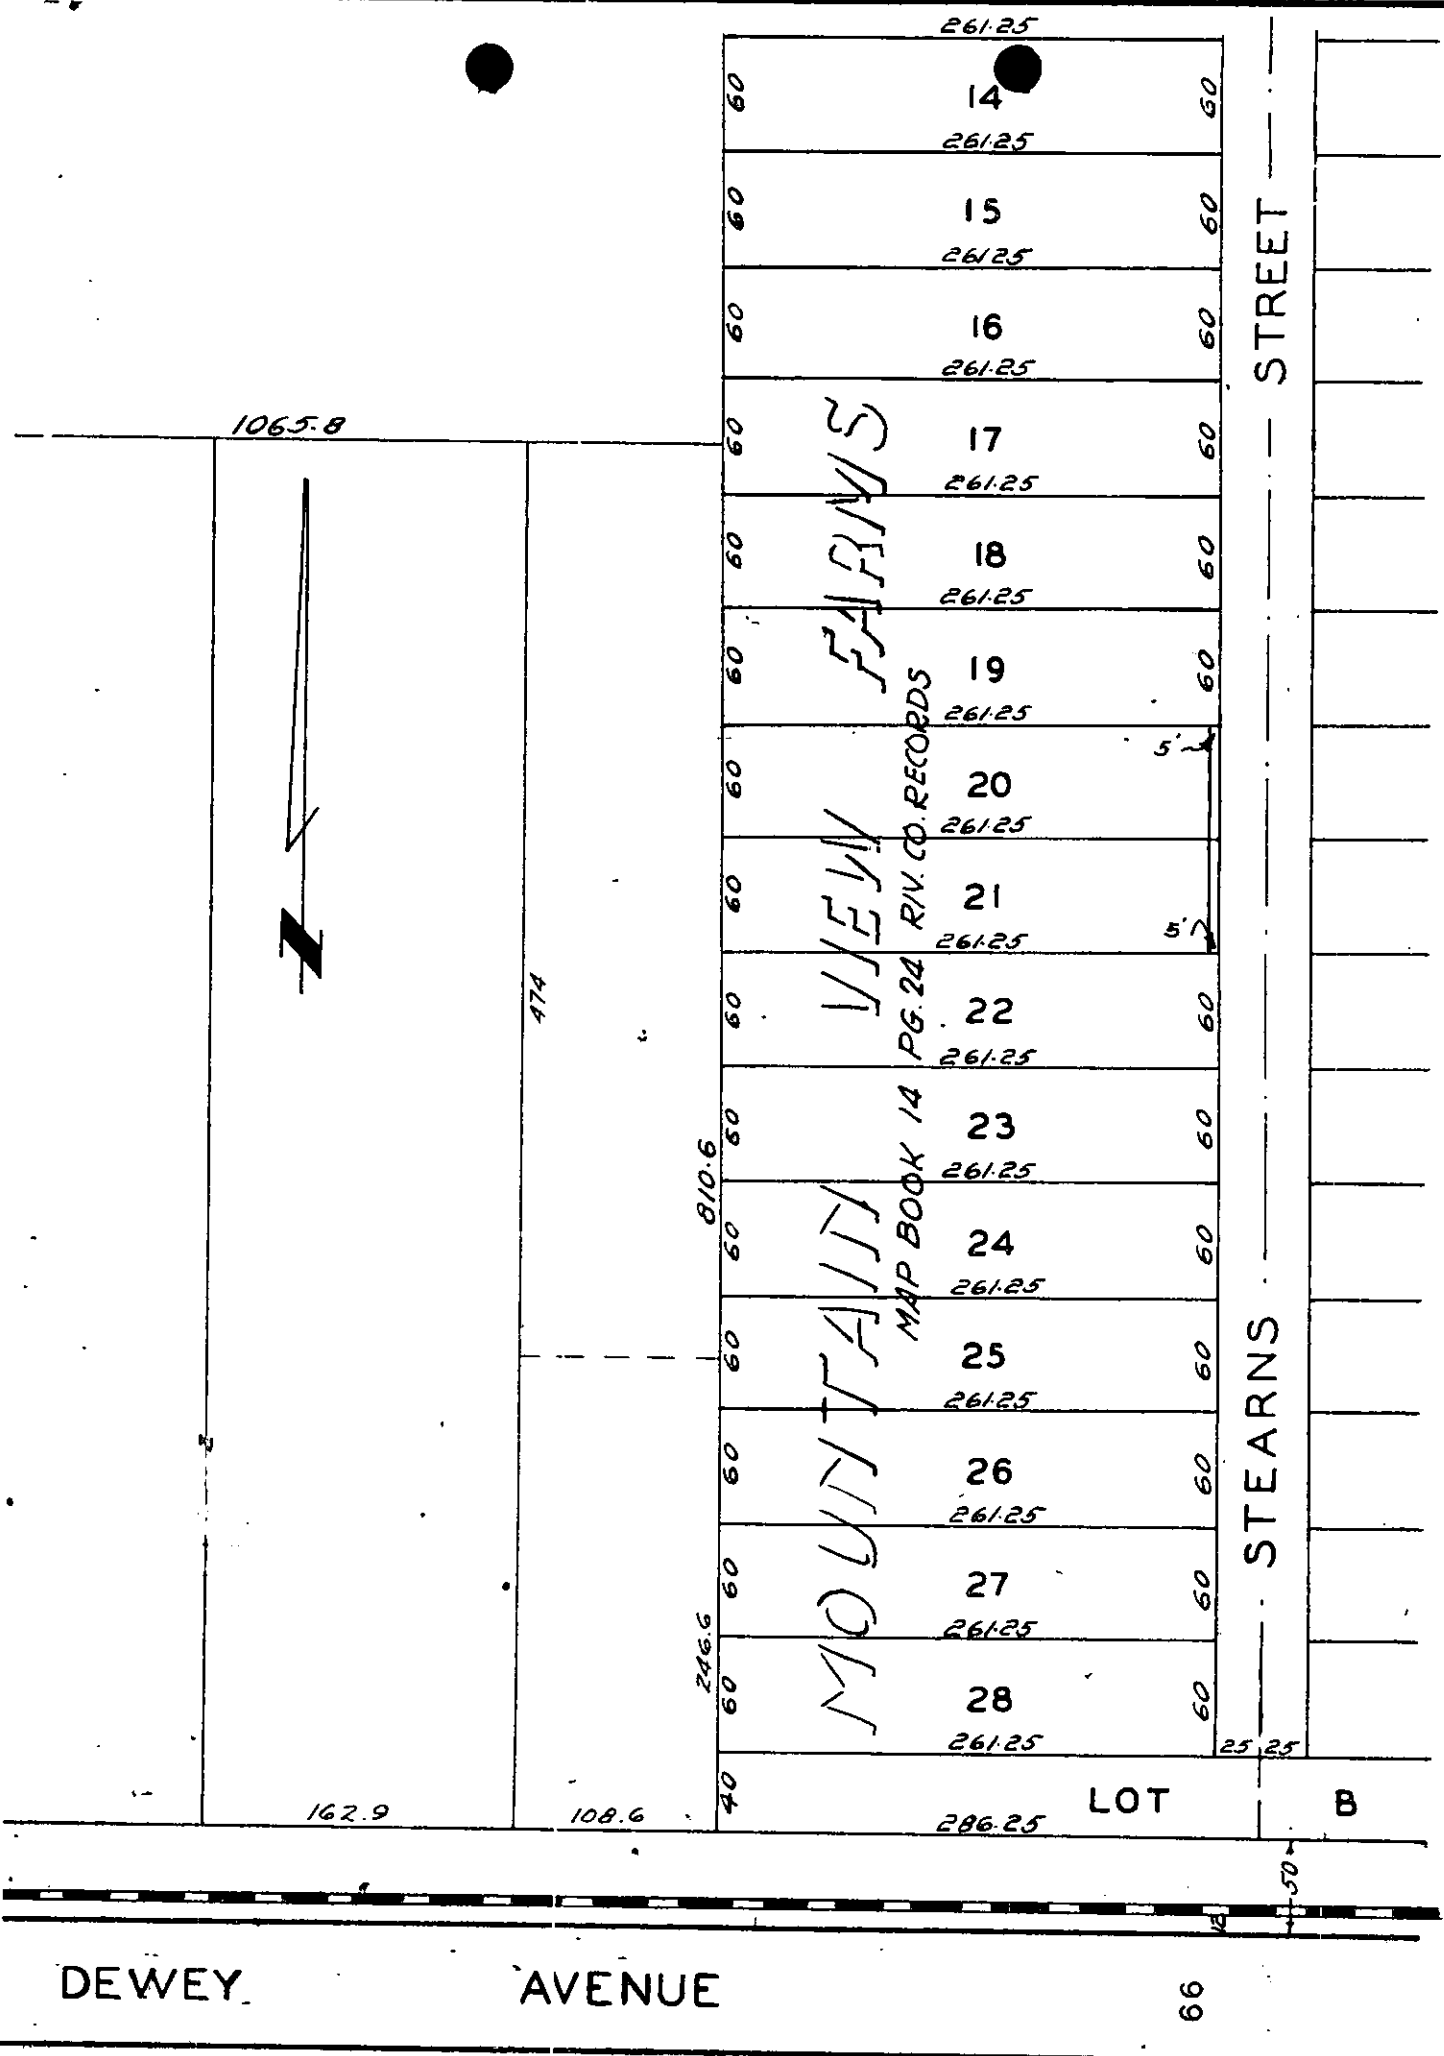 261.25
60 14 60
261.25
60 15 60
26125
60 16 60
261.25
1065.8
60 17 60
261.25
60 18 60
261.25
60 19 60
261.25
5'
60 20
261.25
60 21
5'
261.25
60 22 60
261.25
60 23 60
261.25
60 24 60
261.25
60 25 60
261.25
60 26 60
261.25
60 27 60
261.25
60 28 60
261.25
25 25
N
474
810.6
246.6
MOUNTAIN VIEW FARMS
MAP BOOK 14 PG. 24 RIV. CO. RECORDS
STEARNS STREET
40
LOT B
162.9
108.6
286.25
50
12
DEWEY AVENUE
66